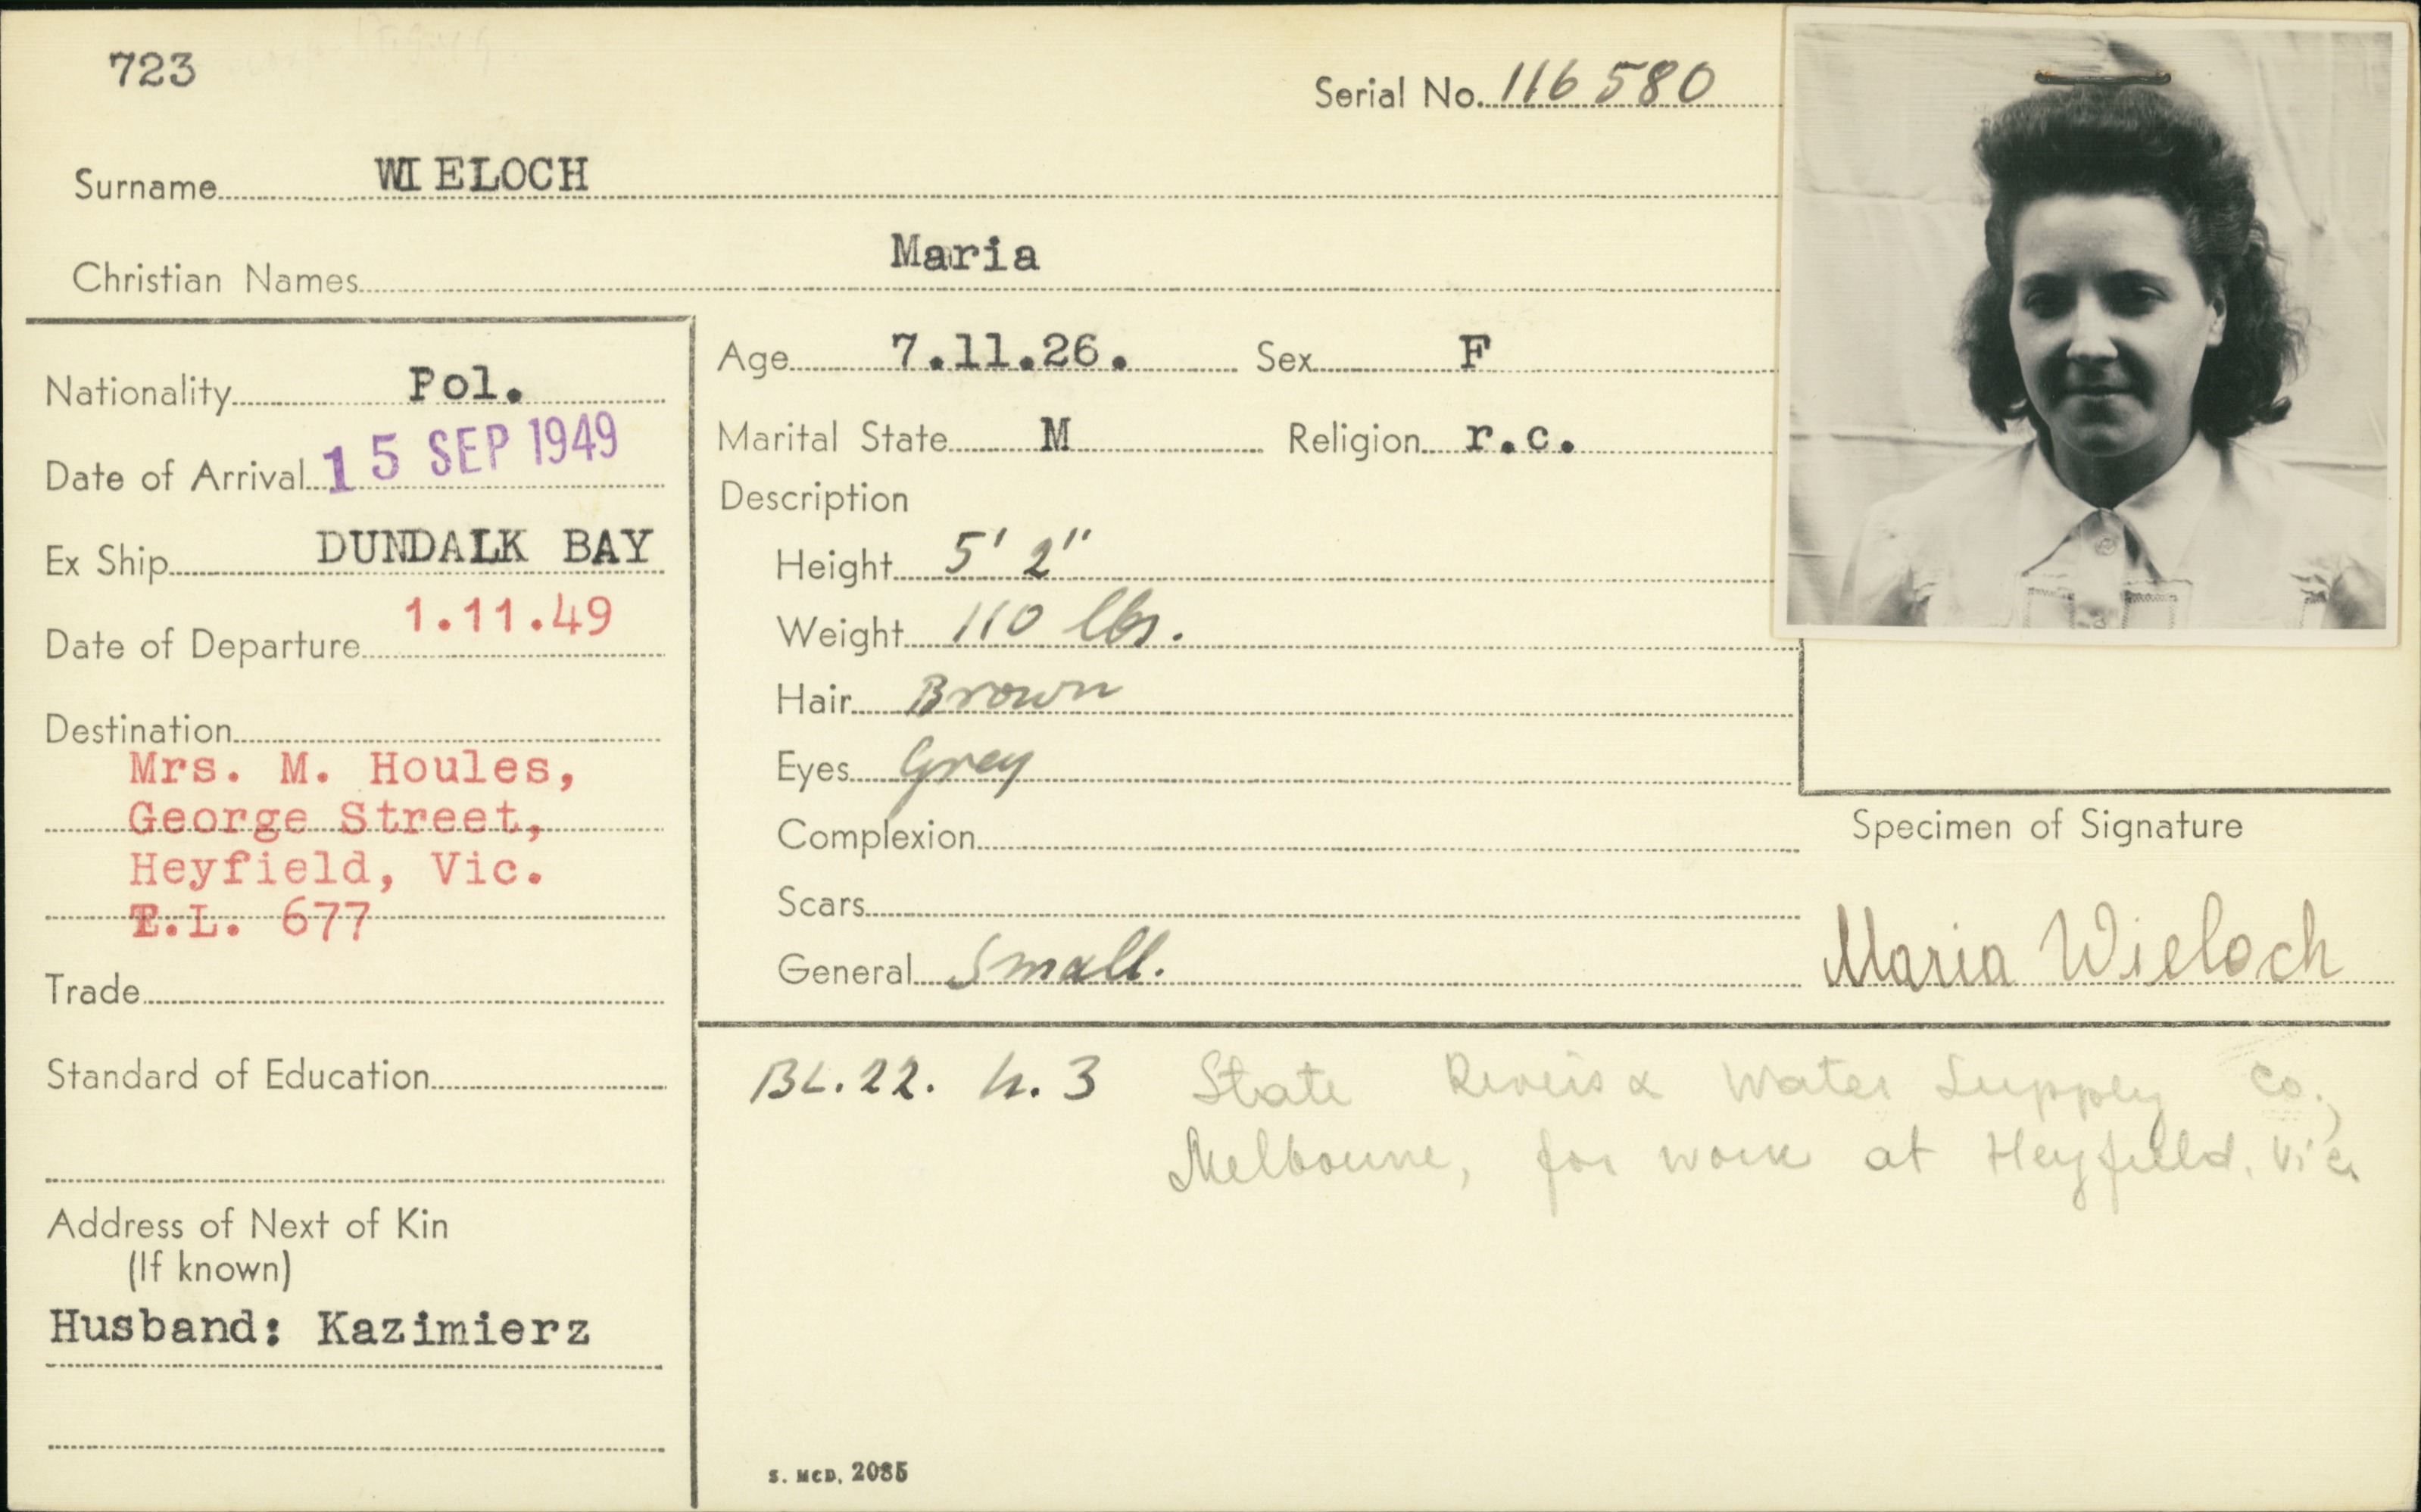 723
Serial No. 116580
Surname WIELOCH
Christian Names Maria
Nationality Pol.
Date of Arrival 15 SEP 1949
Ex Ship DUNDALK BAY
Date of Departure 1.11.49
Destination
Mrs. M. Houles,
George Street,
Heyfield, Vic.
T.L. 677
Trade
Standard of Education
Address of Next of Kin
(If known)
Husband: Kazimierz
Age 7.11.26. Sex F
Marital State M Religion r.c.
Description
Height 5' 2"
Weight 110 lbs.
Hair Brown
Eyes Grey
Complexion
Scars
General Small.
Specimen of Signature
Maria Wieloch
BL.22. h.3 State Rivers & Water Supply Co.,
Melbourne, for work at Heyfield, Vic.
S. McD. 2085